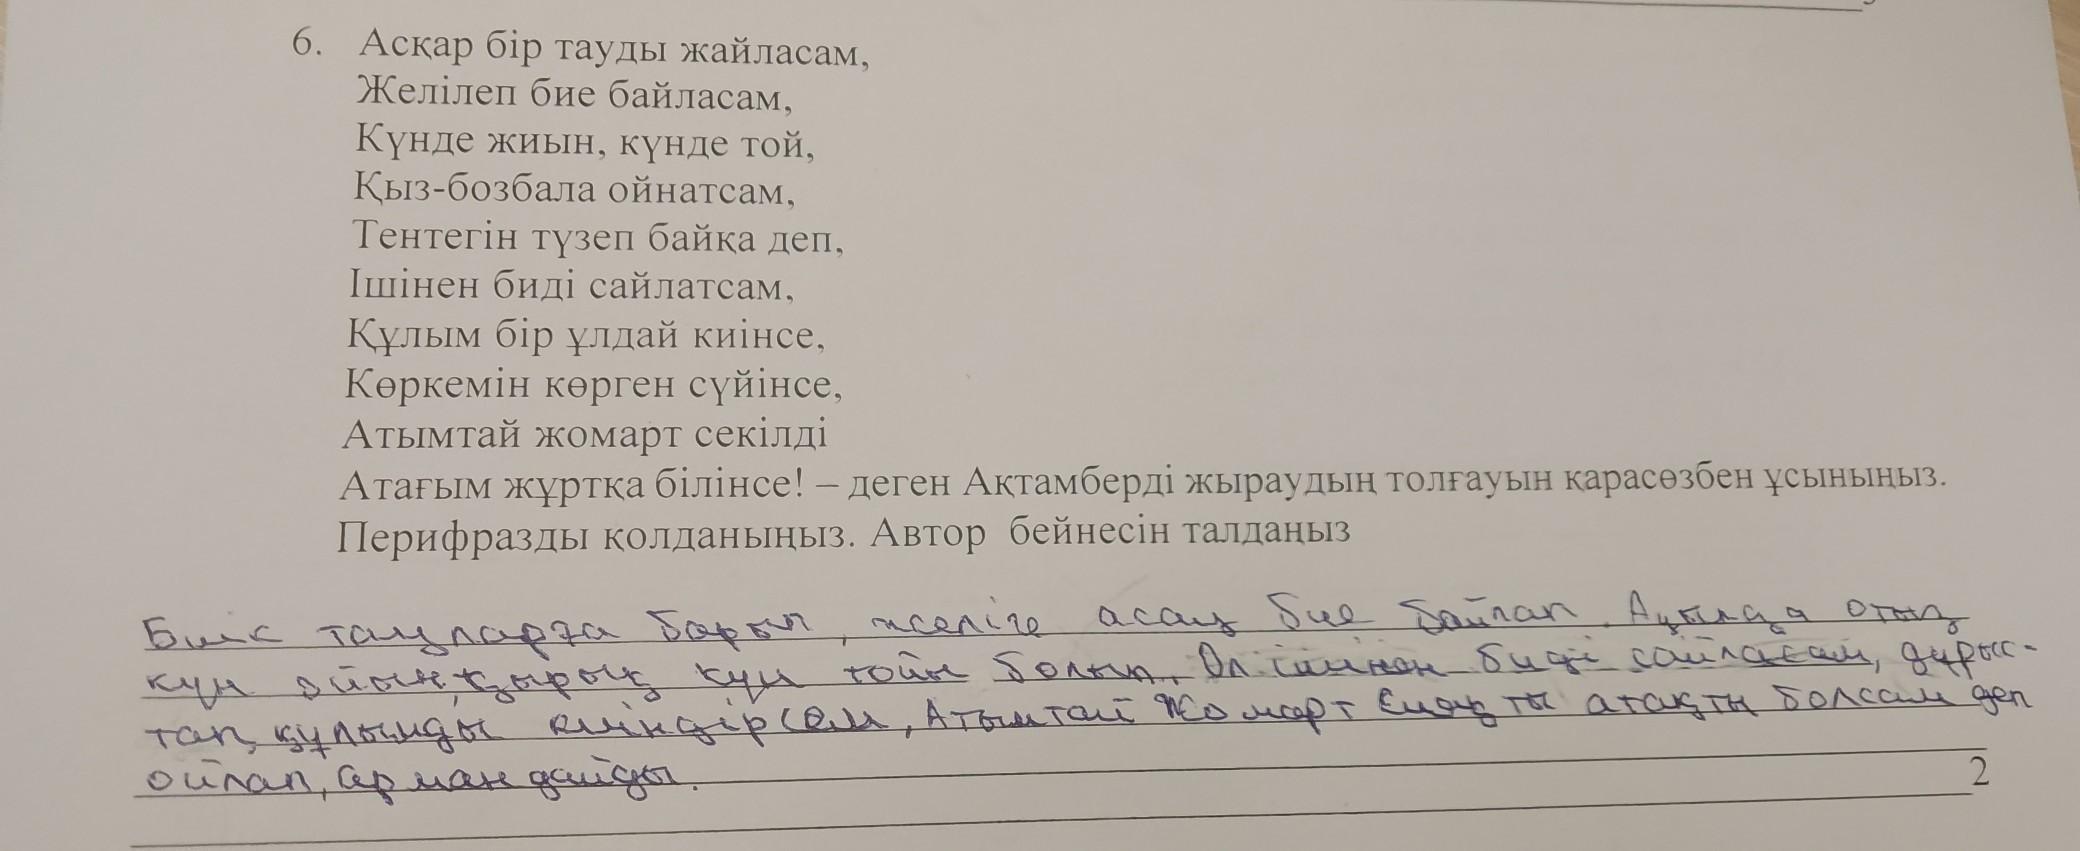 6. Асқар бір тауды жайласам,
Желілеп бие байласам,
Күнде жиын, күнде той,
Қыз-бозбала ойнатсам,
Тентегін түзеп байқа деп,
Ішінен биді сайлатсам,
Құлым бір ұлдай киінсе,
Көркемін көрген сүйінсе,
Атымтай жомарт секілді
Атағым жұртқа білінсе! – деген Ақтамберді жыраудың толғауын қарасөзбен ұсыныңыз.
Перифразды қолданыңыз. Автор бейнесін талдаңыз
Биік тауларға барып, желіге асау бие байлап. Ауылда отыз
күн ойын, қырық күн тойы болып. Ол ішінен биді сайласам, дұрыс-
тап, құлымды киіндірсем, Атымтай Жомарт атақты болсам деп
ойлап, армандайды.
2